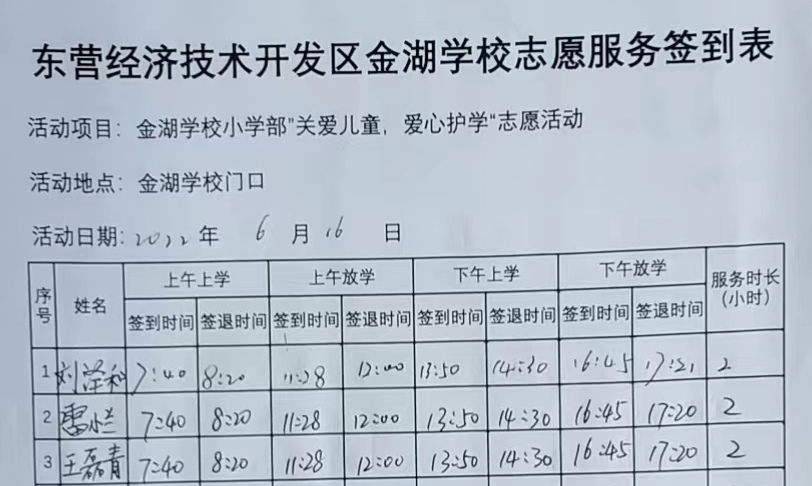 东营经济技术开发区金湖学校志愿服务签到表
活动项目：金湖学校小学部"关爱儿童，爱心护学“志愿活动
活动地点：金湖学校门口
活动日期：2022 年 6 月 16 日
序号 姓名 上午上学 上午放学 下午上学 下午放学 服务时长（小时）
签到时间 签退时间 签到时间 签退时间 签到时间 签退时间 签到时间 签退时间
1 刘泽和 7:40 8:20 11:28 12:00 13:50 14:30 16:45 17:21 2
2 雷烂 7:40 8:20 11:28 12:00 13:50 14:30 16:45 17:20 2
3 王磊青 7:40 8:20 11:28 12:00 13:50 14:30 16:45 17:20 2